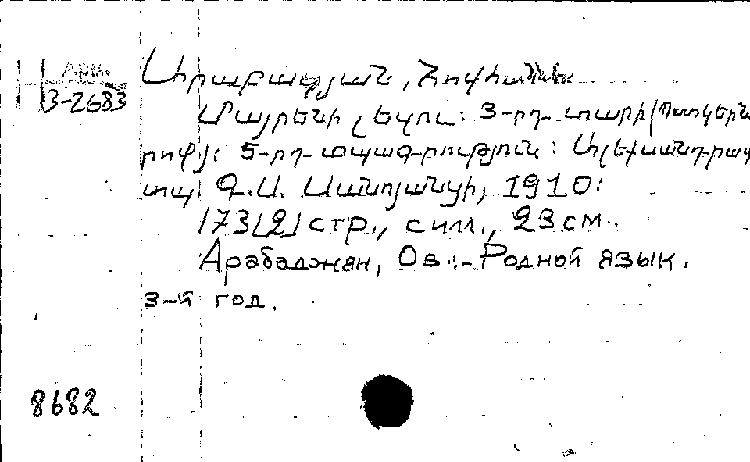 АРМ.
3-2683
Արաբաջյան, Հովհաննես
Մայրենի լեզու: 3-րդ տարի (Պատկերն
րով): 5-րդ տպագրություն: Ալեքսանդրապ
տպ. Գ.Ս. Սանոյանցի, 1910:
173[2] стр., илл., 23 см.
Арабаджян, Ов.-Родной язык.
3-й год.
8682